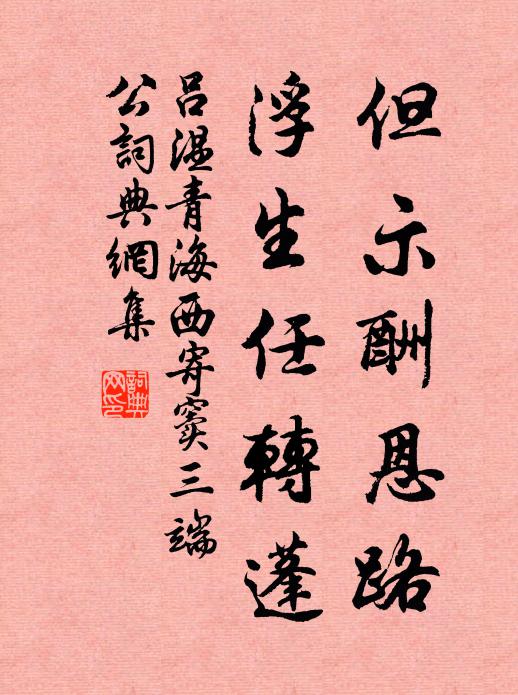 但示酬恩路
浮生任轉蓬
呂溫青海西寄竇三端
公詞典網集
詞典網印